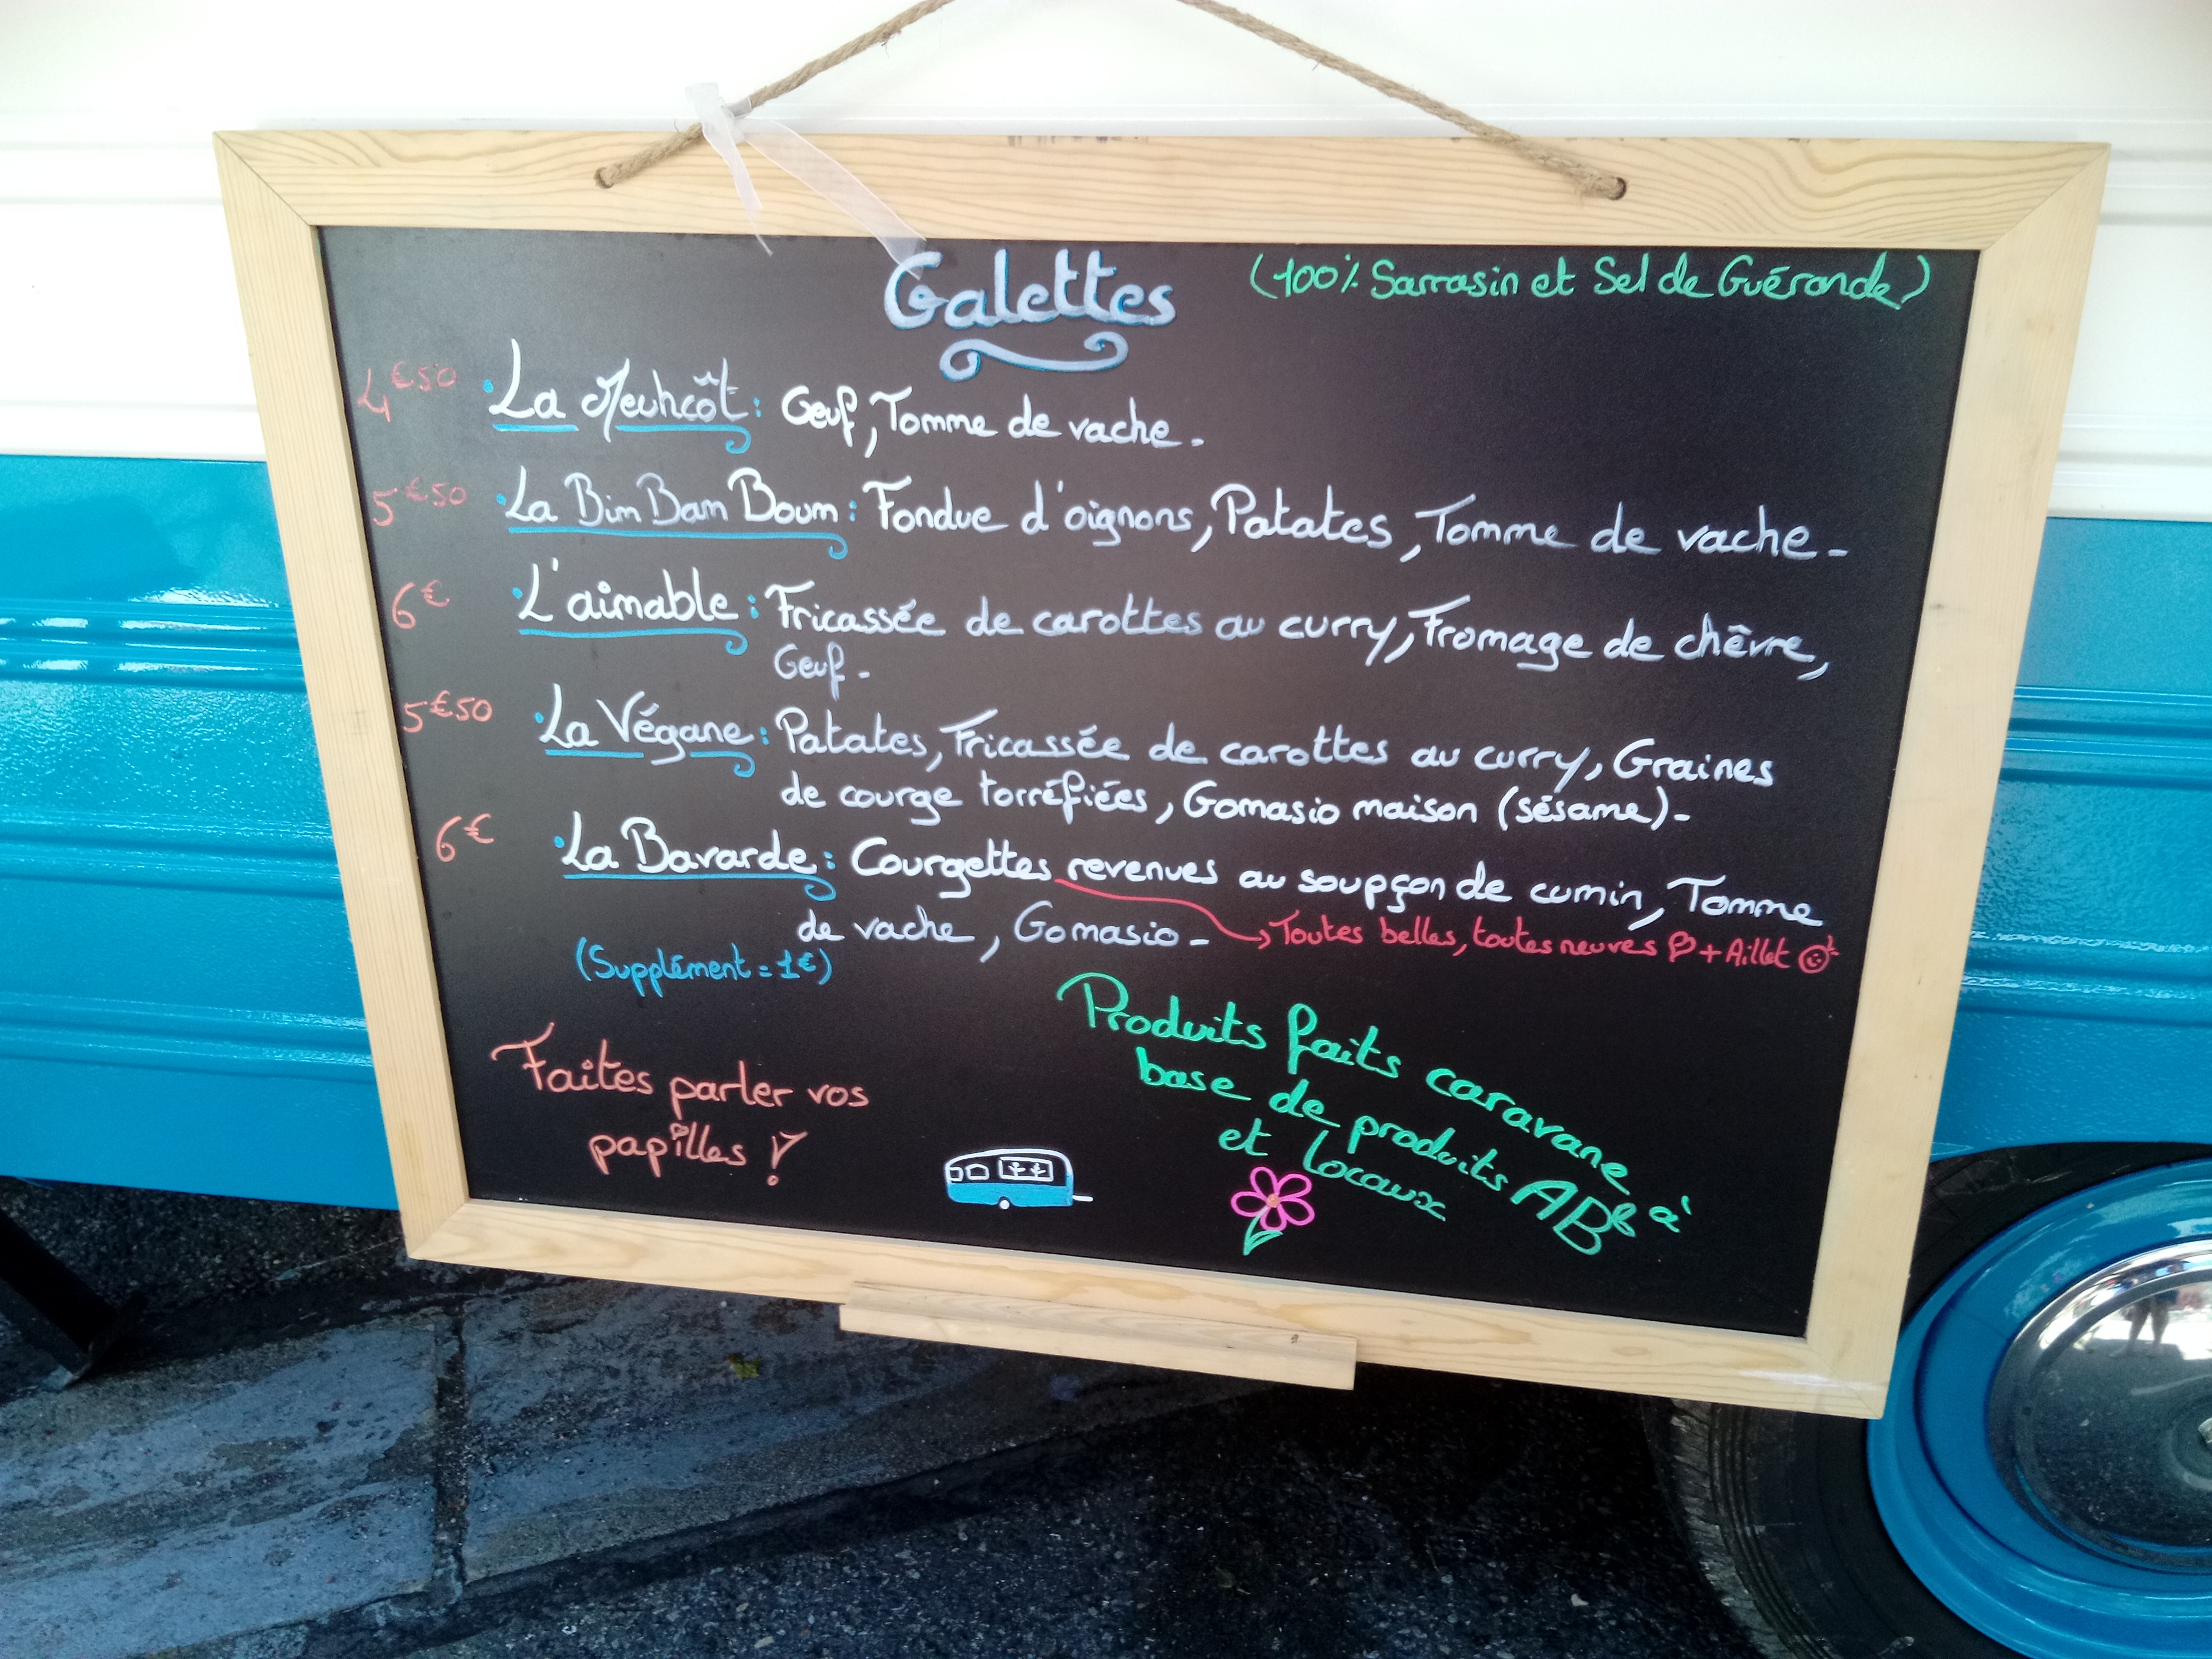 Galettes (100% Sarrasin et Sel de Guérande)
4€50 · La Meuhcôt : Oeuf, Tomme de vache.
5€50 · La Bim Bam Boum : Fondue d'oignons, Patates, Tomme de vache.
6€ · L'aimable : Fricassée de carottes au curry, Fromage de chêvre,
Oeuf.
5€50 · La Végane : Patates, Fricassée de carottes au curry, Graines
de courge torréfiées, Gomasio maison (sésame).
6€ · La Bavarde : Courgettes revenues au soupçon de cumin, Tomme
de vache, Gomasio. → Toutes belles, toutes neuves ♡ + Aillet ☺
(Supplément = 1€)
Faites parler vos
papilles !
Produits faits caravane à
base de produits AB
et locaux